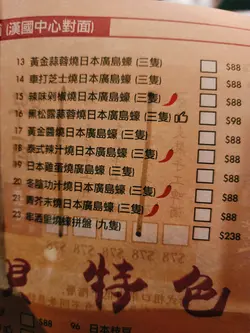 (漢國中心對面)
13 黃金蒜蓉燒日本廣島蠔 (三隻) $88
14 車打芝士燒日本廣島蠔 (三隻) $88
15 辣味剁椒燒日本廣島蠔 (三隻) $88
16 黑松露蒜蓉燒日本廣島蠔 (三隻) $98
17 黃金醬燒日本廣島蠔 (三隻) $88
18 泰式辣汁燒日本廣島蠔 (三隻) $88
19 日本雞蛋燒廣島蠔 (三隻) $88
20 冬陰功汁燒日本廣島蠔 (三隻) $88
21 青芥末燒日本廣島蠔 (三隻) $88
22 串酒園燒蠔拼盤 (九隻) $238
特色
$88 96